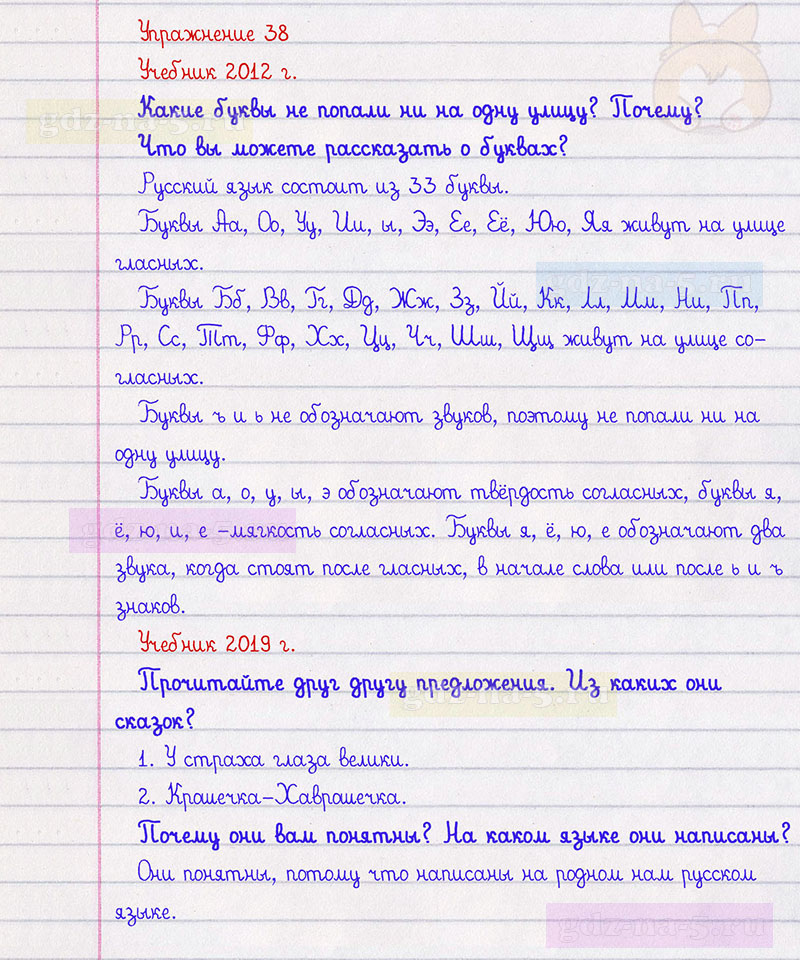 Упражнение 38
Учебник 2012 г.
Какие буквы не попали ни на одну улицу? Почему?
gdz-na-5.ru
Что вы можете рассказать о буквах?
Русский язык состоит из 33 буквы.
Буквы Аа, Оо, Уу, Ии, ы, Ээ, Ее, Её, Юю, Яя живут на улице
гласных.
gdz-na-5.ru
Буквы Бб, Вв, Гг, Дд, Жж, Зз, Йй, Кк, Лл, Мм, Нн, Пп,
Рр, Сс, Тт, Фф, Хх, Цц, Чч, Шш, Щщ живут на улице со-
гласных.
Буквы ъ и ь не обозначают звуков, поэтому не попали ни на
одну улицу.
Буквы а, о, у, ы, э обозначают твёрдость согласных, буквы я,
ё, ю, и, е -мягкость согласных. Буквы я, ё, ю, е обозначают два
gdz-na-5.ru
звука, когда стоят после гласных, в начале слова или после ь и ъ
знаков.
Учебник 2019 г.
Прочитайте друг другу предложения. Из каких они
gdz-na-5.ru
сказок?
1. У страха глаза велики.
2. Крошечка-Хаврошечка.
Почему они вам понятны? На каком языке они написаны?
Они понятны, потому что написаны на родном нам русском
языке.
gdz-na-5.ru